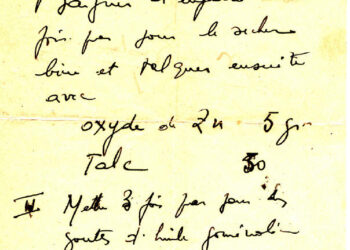 fois par jour le sécher
bien et talquer ensuite
avec
oxyde de Zn 5 gr
Talc 50
II Mettre 3 fois par jour des
gouttes d'huile goménolée